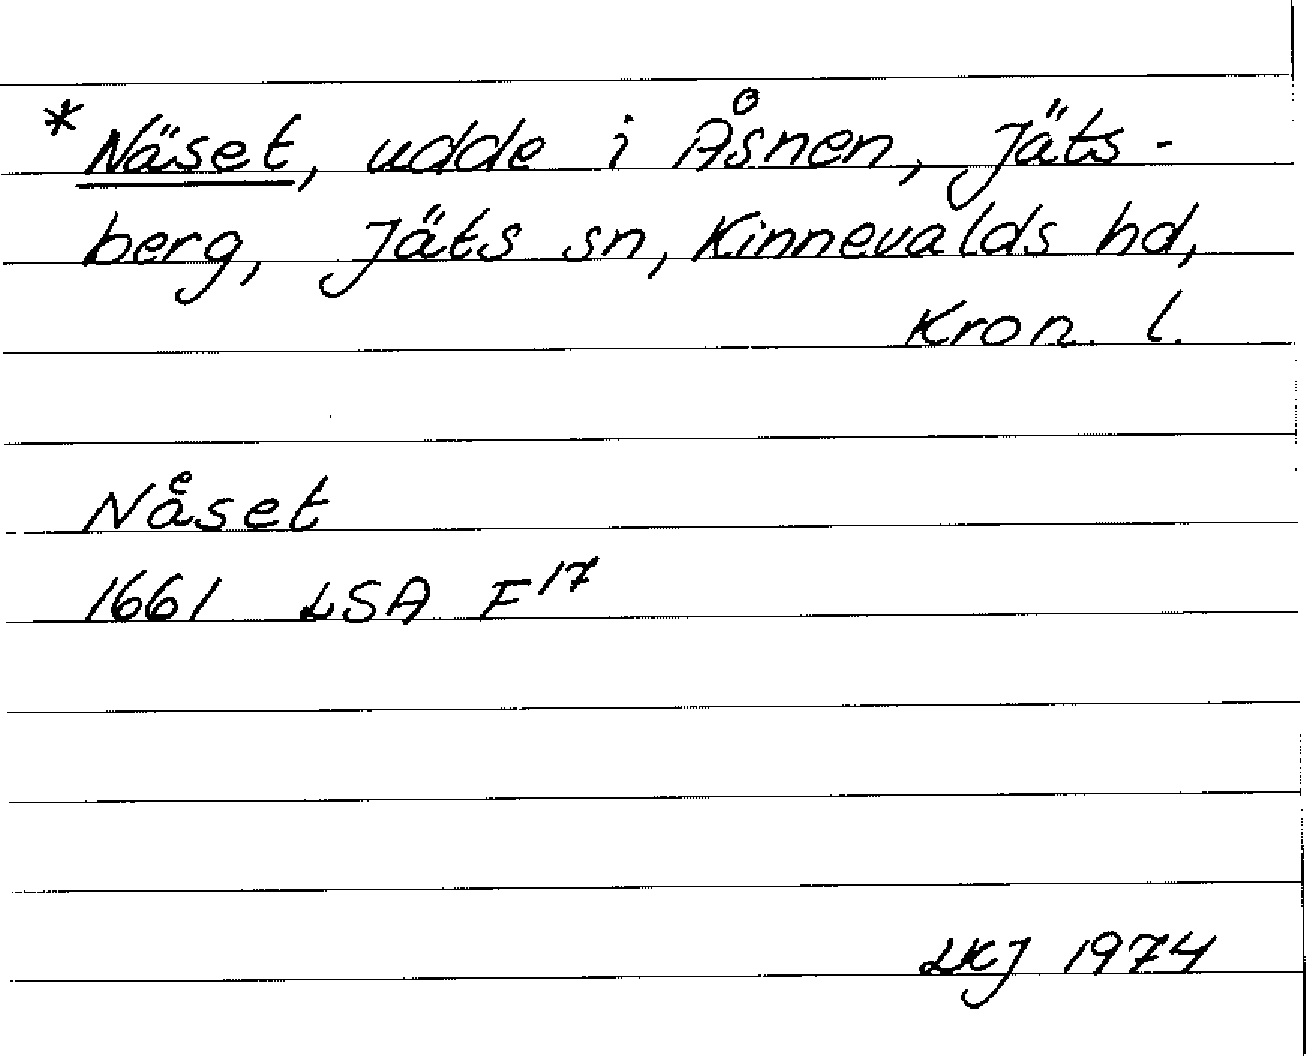 *Näset, udde i Åsnen, Jäts-
berg, Jäts sn, Kinnevalds hd,
Kron. l.
Naͤset
1661 LSA F17
LKJ 1974